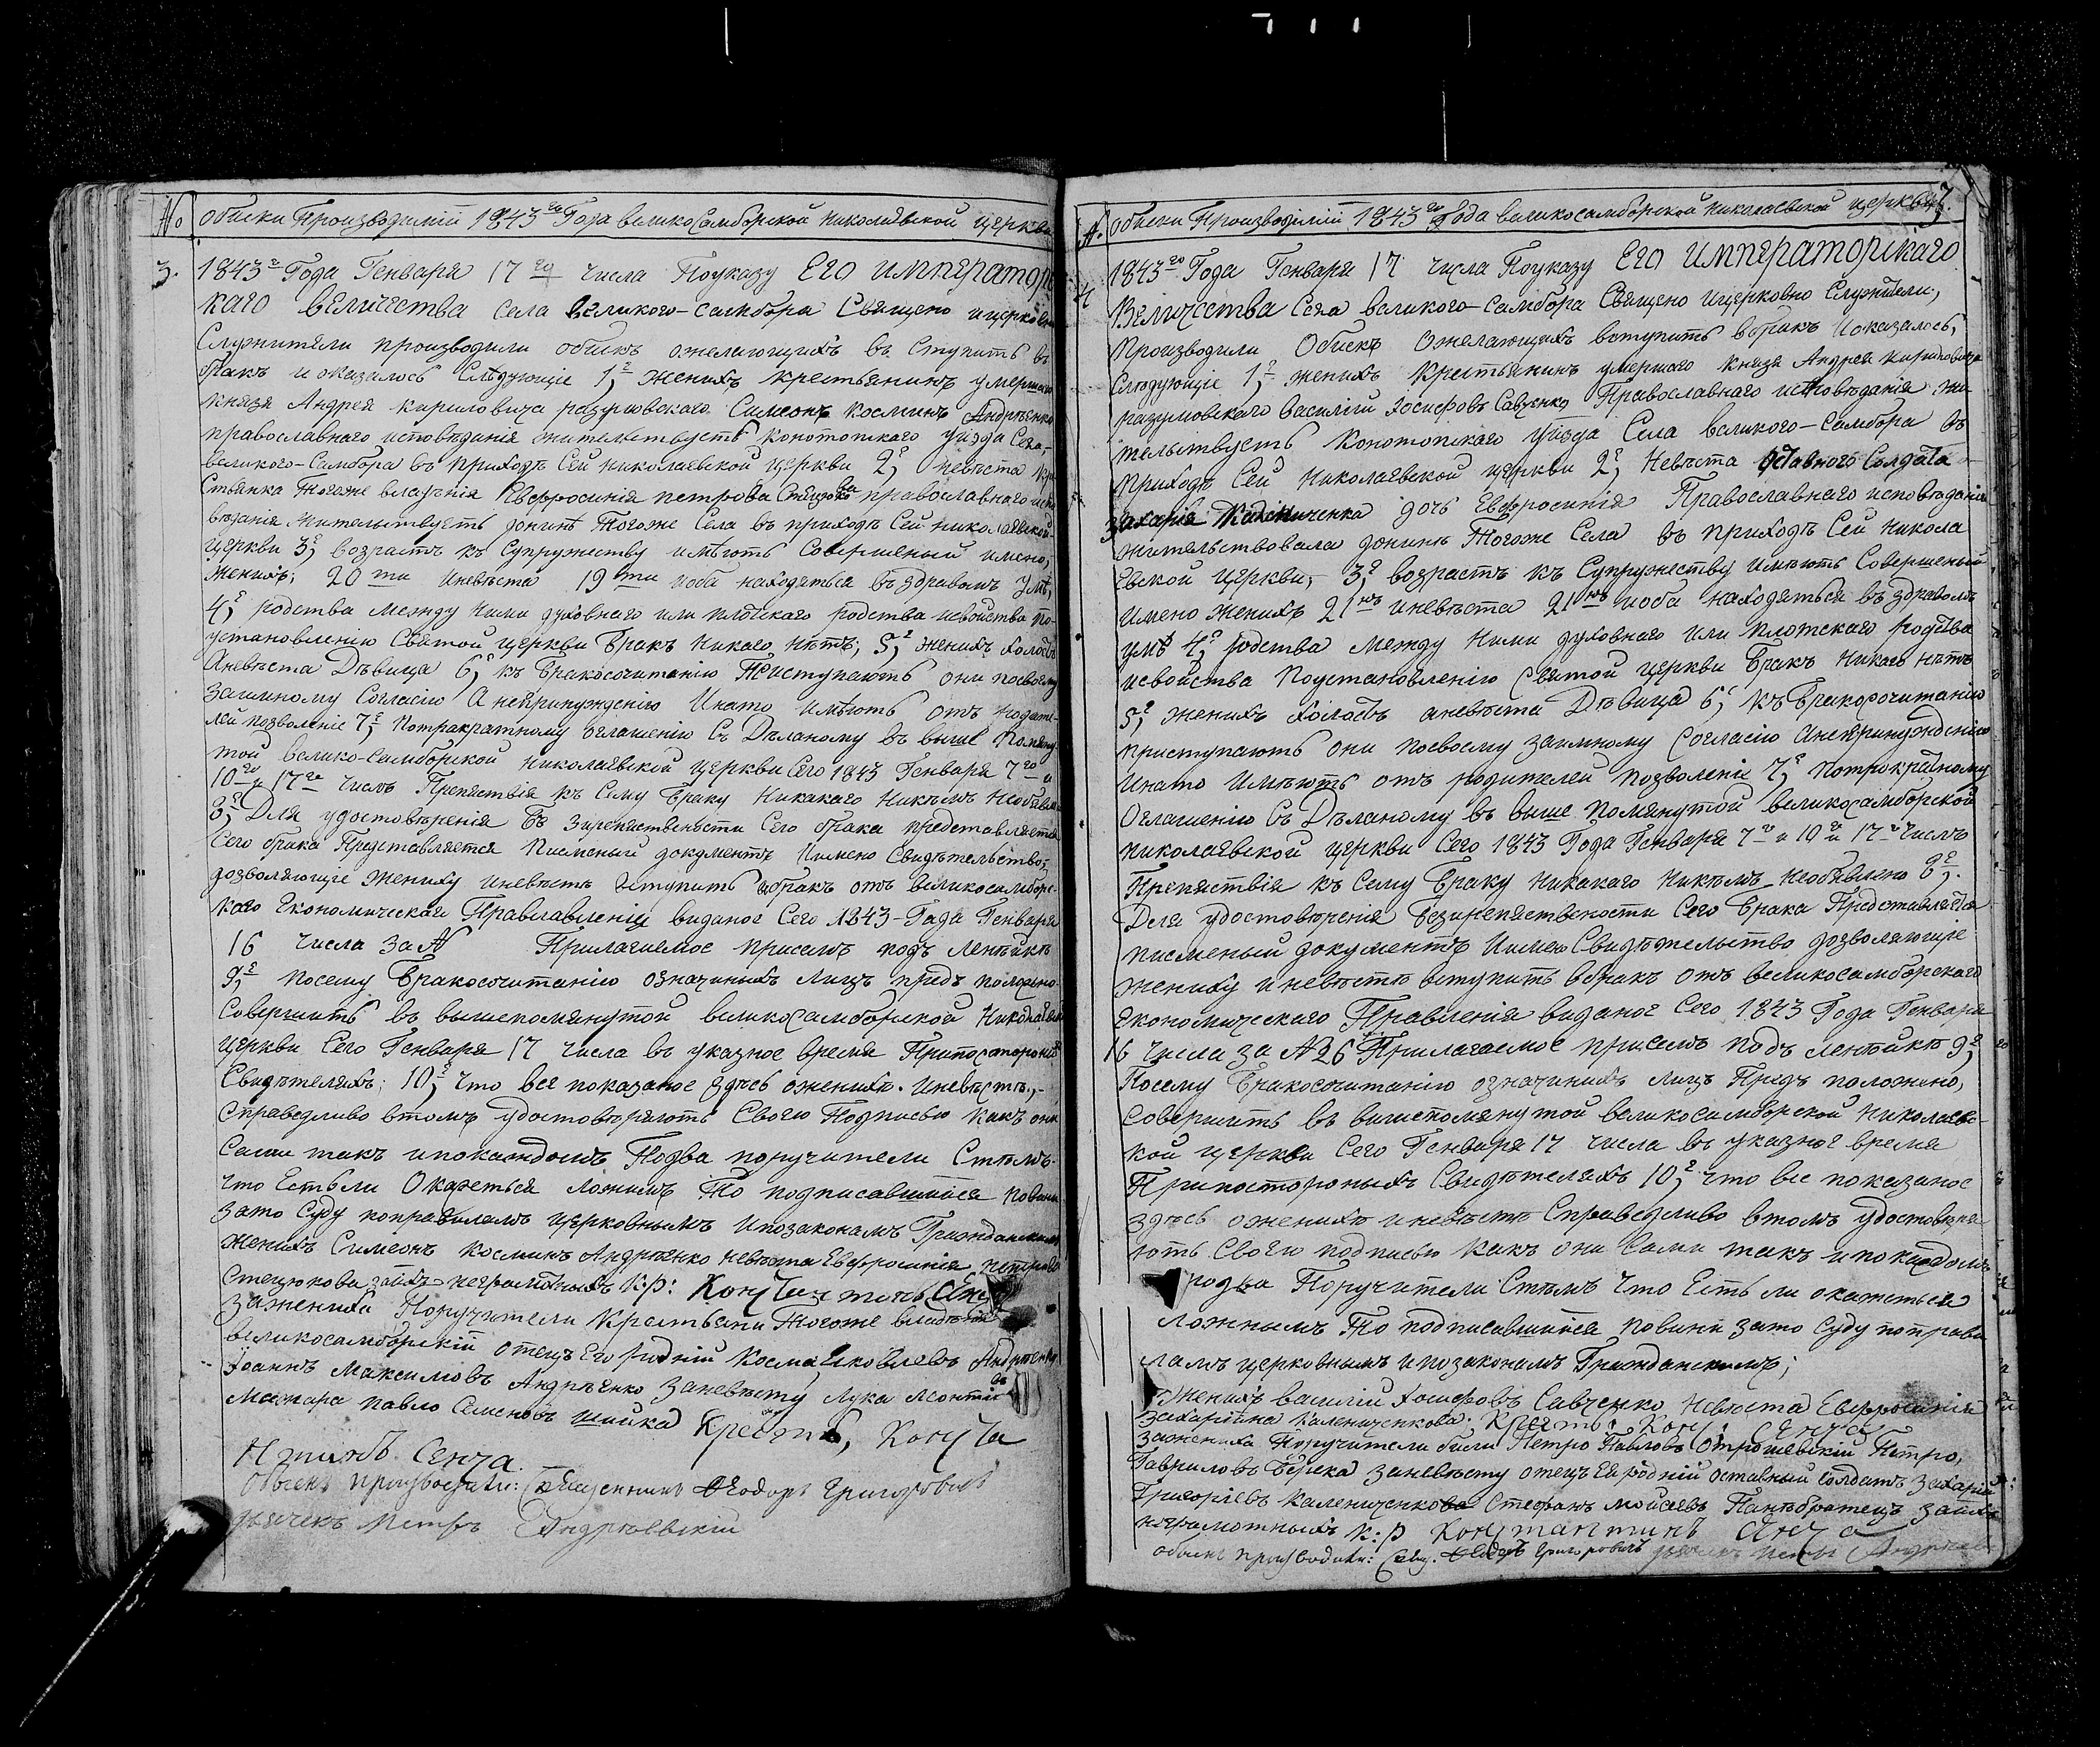 № Обиски Производиміи 1843го Года великоСамборской николаевской церкви
3. 1843г Года Генваря 17го числа Поуказу Его императорс
каго величества села великого-самбора Священо ицерковно
Служители производили обискъ ожелающихъ въ Ступить въ
бракъ и оказалось Слѣдующіе 1,е женихъ крестьянинъ умершаго
князя Андрея кириловича разумовскаго Симеонъ косминъ Андрѣенко
православнаго исповѣданія жительствуетъ конотопкаго уѣзда Села
великого-Самбора въ приходѣ Сей николаевской церкви 2,е невѣста кре
Стьянка Тогоже владѣнія Евфросинія петрова Стецюкова православнаго испо
вѣданія жительствуетъ донинѣ Тогоже Села въ приходѣ Сей николаевской
церкви 3,е возрастъ къ Супружеству имѣютъ Совершеный имено,
женихъ; 20ти иневѣста 19ти иоба находяться въ здравомъ умѣ,
4,е родства между ними духовнаго или плотскаго родства исвойства по
установленію Святой церкви бракъ никаго нѣтъ; 5,е женихъ холостъ
Аневѣста Дѣвица 6,е къ бракосочитанію Приступаютъ они посвоему
заимному Согласію Анепринужденію Инато имѣютъ отъ родите-
лей позволеніе 7,е Потрикратному оглашенію Съ Дѣланому въ выше Помяну
той велико-самборской николаевской церкви Сего 1843 Генваря 7го и
10го и 17го числъ Препяствія къ Сему браку Никакаго Никѣмъ необявле
8,е Для удостовѣренія безнепяственности Сего брака представляется
Сего брака Представляется Писменый документъ Иимено Свидѣтельство,
дозволяющіе жениху иневѣстѣ вступить вбракъ отъ великосамборс-
каго Економическаго Правлавленія виданое Сего 1843-Года Генваря
16 числа за № Прилагаемое присемъ подъ лентійкѣ
9,е посему бракосочитанію означиныхъ лицъ предъ положено
Совершить въ вышепомянутой великоСамборской Николаевск
церкви Сего Генваря 17 числа въ указное время Припостороних
Свидѣтеляхъ; 10,е что все показаное здѣсь оженихѣ. Иневѣстѣ,-
Справедливо втомъ удостовѣряютъ Своею Подписью какъ они
Сами такъ ипокаждомъ Подва поручители Стѣмъ-
что Естьли Окажеться ложнимъ То подписавшиіся повини
зато Суду поправиламъ церковнымъ ипозаконамъ Гражданским
женихъ Симеонъ косминъ Андрѣенко невѣста Евфросинія петрова
Стецюкова заихъ неграмотныхъ кр: Константинъ Сенча
Зажениха Поручители крестьяни Тогоже владѣнія
великосамборскіи отецъ Его родніи косма Яковлевъ Андрѣенко
Іоаннъ Максимовъ Андрѣенко заневѣсту лука леонтіевъ
мажара павло Семеновъ шийка крестья, Конста
Нтинъ Сенча.
Обыскъ производили: Священникъ Феодоръ Григоровичъ
дьячекъ Петръ Андріевскій
№. Обиски Производиміи 1843го Года великосамборской николаевской церкви 3.
4 1843го Года Генваря 17 числа Поуказу Его императорскаго
Величества Села великого-самбора Священо ицерковно Служители,
Производили Обискъ Ожелающихъ вступить вбракъ Иоказалось,
Слѣдующіе 1,е женихъ крестьянинъ умершаго князя Андрея кириловича
разумовскаго василіи Іосифовъ Савченко Православнаго исповѣданія жи-
тельствуетъ Конотопскаго уѣзда Села великого-Самбора въ
приходѣ Сей Николаевской церкви 2,е Невѣста оставного Солдата
Захарія Калениченка дочь Евфросинія Православнаго исповѣданія
жительствовала донинѣ Тогоже Села въ приходѣ Сей Никола
евской церкви,- 3,е возрастъ къ Супружеству Имѣютъ Совершеный
Имено женихъ 21 иневѣста 21 иоба находяться въ здравомъ
умѣ 4,е родства между Ними духовнаго или плотскаго родства
исвойства Поустановленію Святой церкви бракъ никаго нѣтъ
5,е женихъ холостъ аневѣста Дѣвица 6,е къ бракосочитанію
приступаютъ они посвоему заимному Согласію Анепринужденію
Инато Имѣютъ отъ родителей позволеніе 7,е Потрикратному
Оглашенію Съ Дѣланому въ выше Помянутой великосамборской
николаевской церкви Сего 1843 Года Генваря 7го и 10го и 17го числъ
Препяствія къ Сему браку Никакаго Никѣмъ необявлено 8,е
Для удостовѣренія безинепяствености Сего брака Представляется
писменый документъ Иимено Свидѣтельство дозволяющіе
жениху иневѣстѣ вступить вбракъ отъ великосамборскаго
Економическаго Правленія виданое Сего 1843 Года Генваря
16 числа за №26 Прилагаемое присемъ подъ лентійкѣ 9,е
Посему бракосочитанію означинихъ лицъ Предъ положено,
Совершить въ вишепомянутой великосамборской Николаевс-
кой церкви Сего Генваря 17 числа въ указное время
Припосторонихъ Свидѣтеляхъ 10,е что все показаное
здѣсь оженихѣ иневѣстѣ Справедливо втомъ удостовѣря
ютъ Своею подписью какъ они Сами такъ ипокаждомъ
подва Поручители Стѣмъ что Естьли окажеться
ложнымъ То подписавшиіся повини зато Суду поправи
ламъ церковнымъ ипозаконамъ Гражданскимъ;
Женихъ василіи Іосифовъ Савченко невѣста Евфросинія
Захаріина калениченкова: Крестья: Конс: Сенча
Зажениха Поручители били Петро Павловъ Отрошевскіи Петро,
Гавриловъ заневѣсту отецъ Ей родніи оставный Солдатъ Захаріи
Григоріевъ калениченкова Стефанъ мойсеевъ Панѣбратецъ заихъ
неграмотныхъ к:р Константинъ Сенча
обыскъ производили: Свящ. Феодоръ Григоровичъ дьячекъ Петръ Андріевс